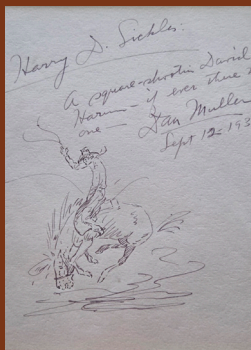 Harry D. Sickles.
A square-shootin David
Harum - if ever there
one - Dan Muller
Sept 12-193